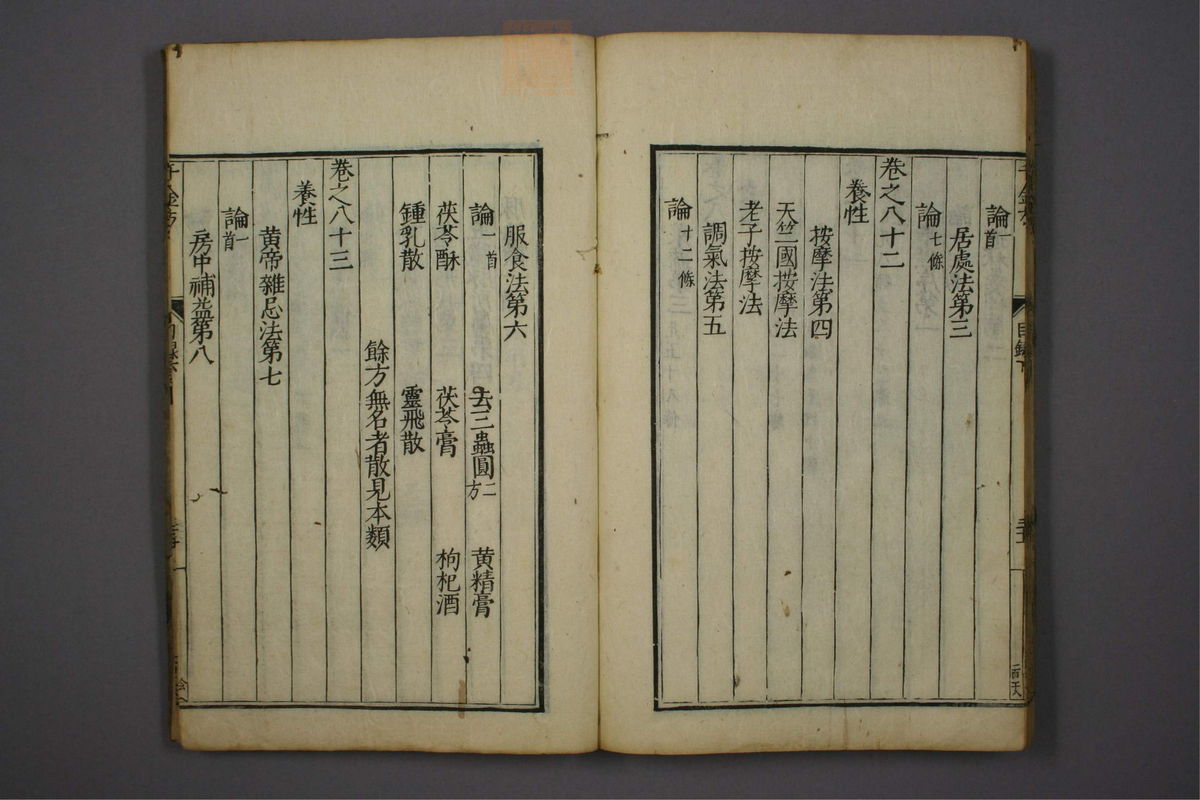 論一首
居處法第三
論七條
卷之八十二
養性
按摩法第四
天竺國按摩法
老子按摩法
調氣法第五
論十二條
目錄下
服食法第六
論一首 去三蟲圓二方 黄精膏
茯苓酥 茯苓膏 枸杞酒
鍾乳散 靈飛散
餘方無名者散見本類
卷之八十三
養性
黄帝雜忌法第七
論一首
房中補益第八
千金方